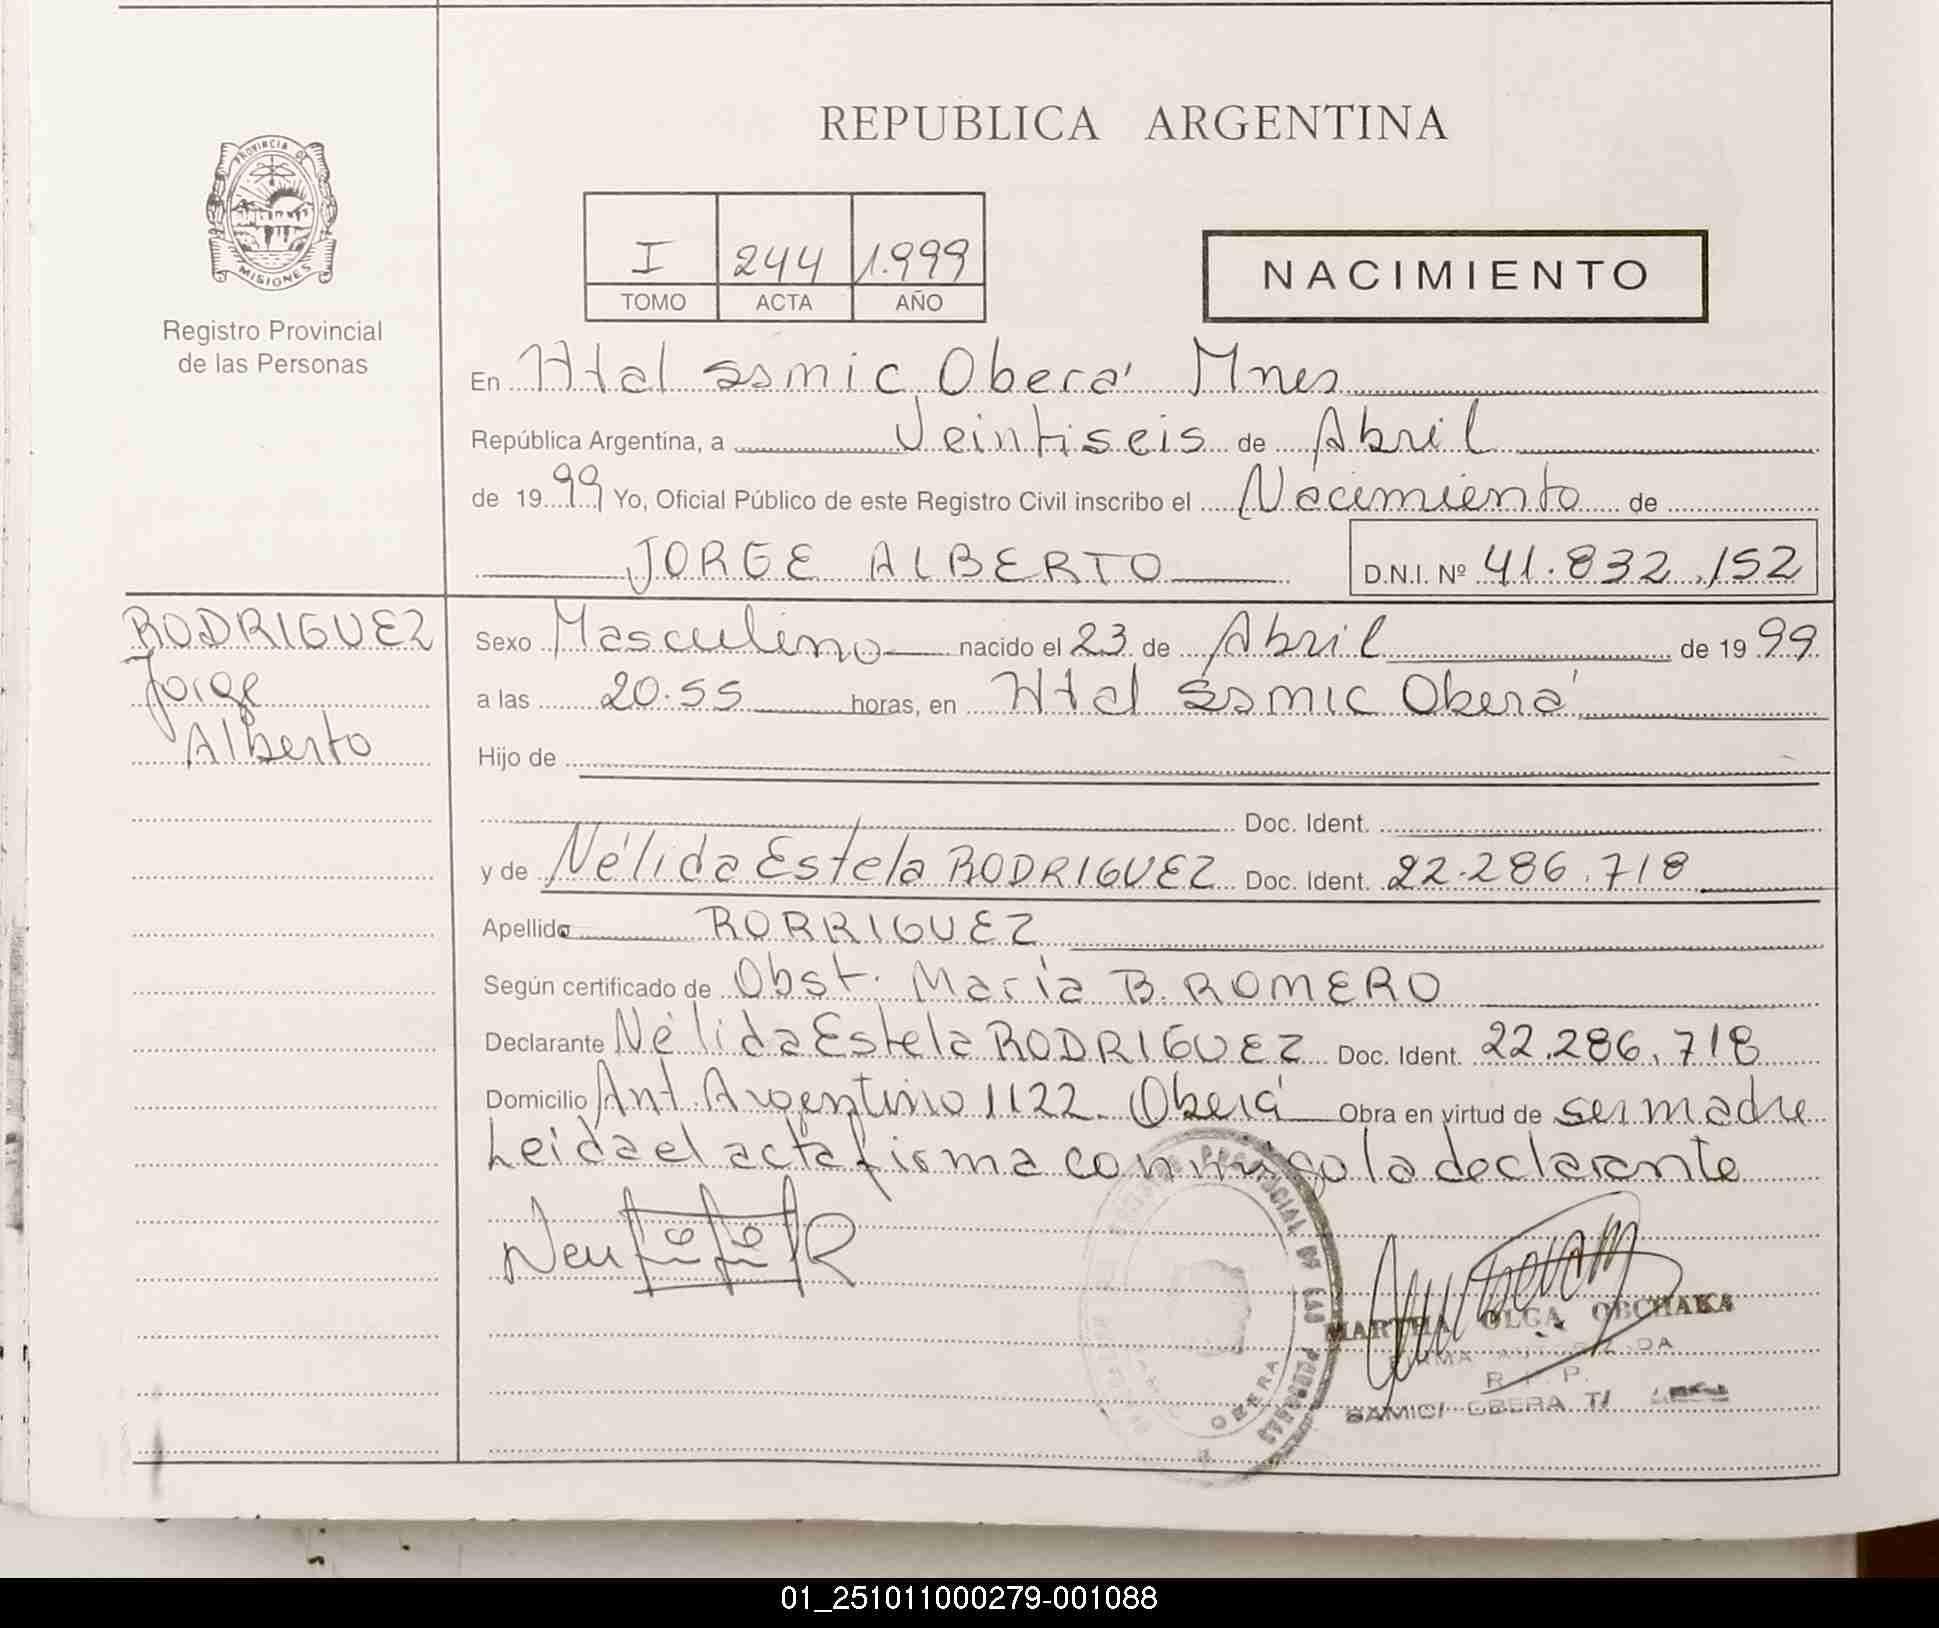 REPUBLICA ARGENTINA
PROVINCIA DE
MISIONES
Registro Provincial
de las Personas
I 244 1.999
TOMO ACTA AÑO
NACIMIENTO
En Htal Ssmic Oberá Mnes
República Argentina, a Veintiseis de Abril
de 1999 Yo, Oficial Público de este Registro Civil inscribo el Nacimiento de
JORGE ALBERTO D.N.I. Nº 41.832.152
RODRIGUEZ
Jorge
Alberto
Sexo Masculino nacido el 23 de Abril de 1999
a las 20.55 horas, en Htal Ssmic Oberá
Hijo de
Doc. Ident.
y de Nélida Estela RODRIGUEZ Doc. Ident. 22.286.718
Apellido RORRIGUEZ
Según certificado de Obst. María B. ROMERO
Declarante Nélida Estela RODRIGUEZ Doc. Ident. 22.286.718
Domicilio Ant. Argentino 1122. Oberá Obra en virtud de ser madre
Leida el acta firma conmigo la declarante
PROVINCIAL DE LAS PERSONAS
OBERA
MARTHA OLGA OBCHAKA
FIRMA AUTORIZADA
R. P. P.
SAMIC/ OBERA
01_251011000279-001088